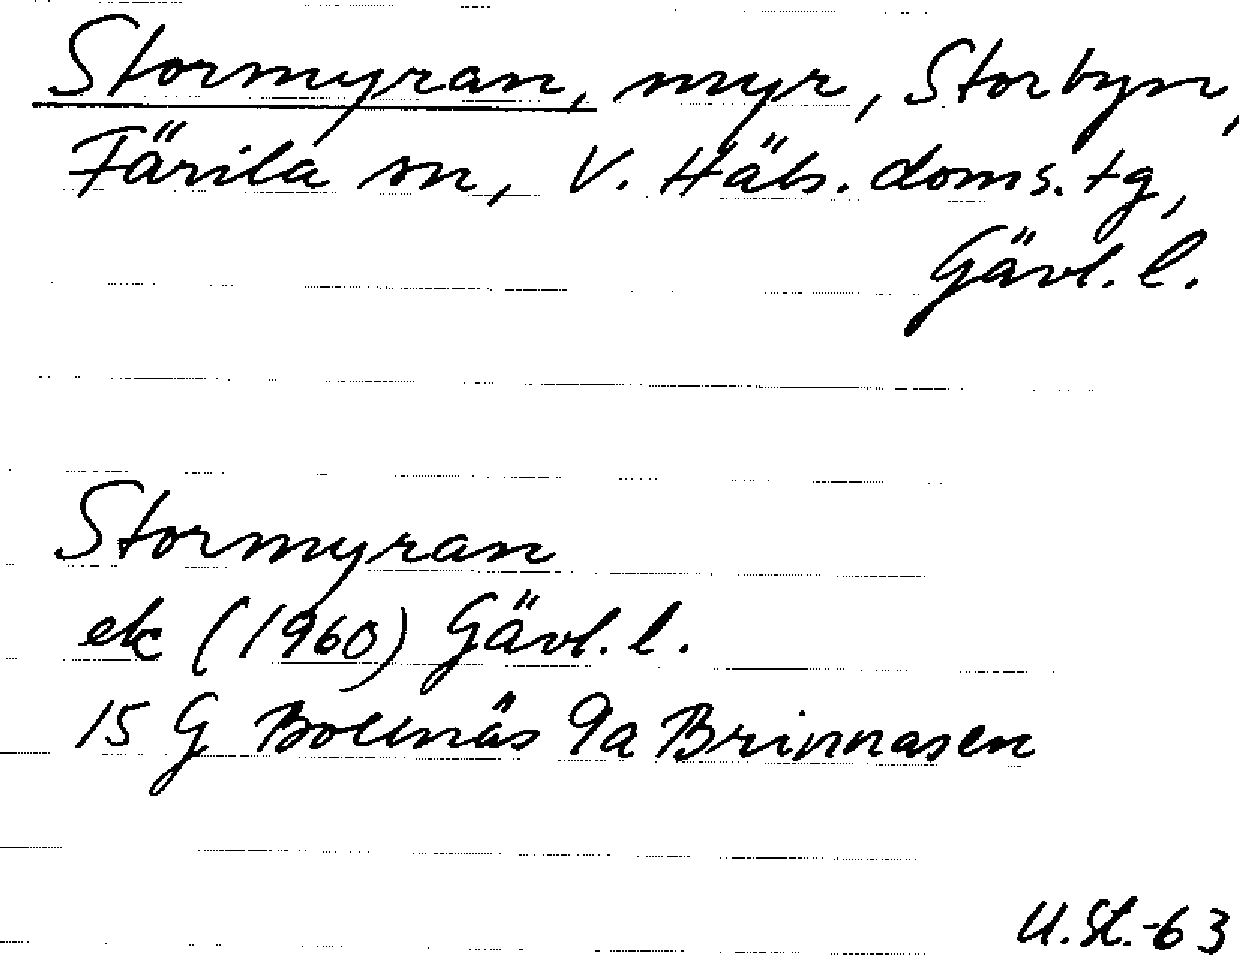 Stormyran, myr, Storbyn,
Färila sn, V. Häls. doms. tg,
Gävl. l.
Stormyran
ek (1960) Gävl. l.
15 G Bollnäs 9a Brinnåsen
U.St.-63